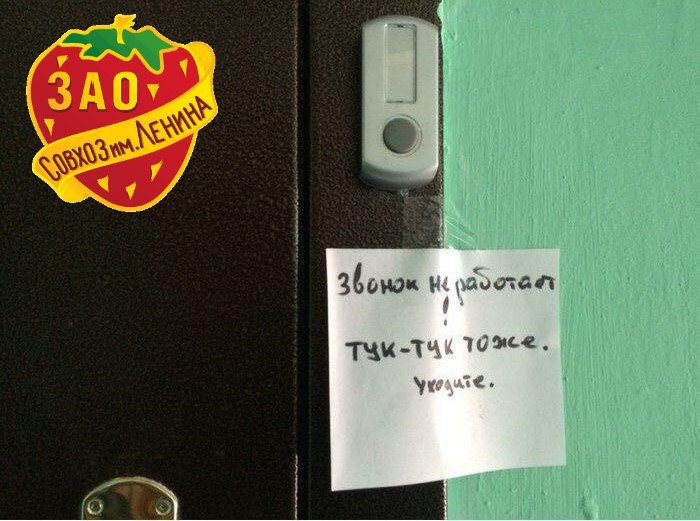 ЗАО
СОВХОЗ им. ЛЕНИНА
Звонок не работает
!
ТУК-ТУК тоже.
Уходите.